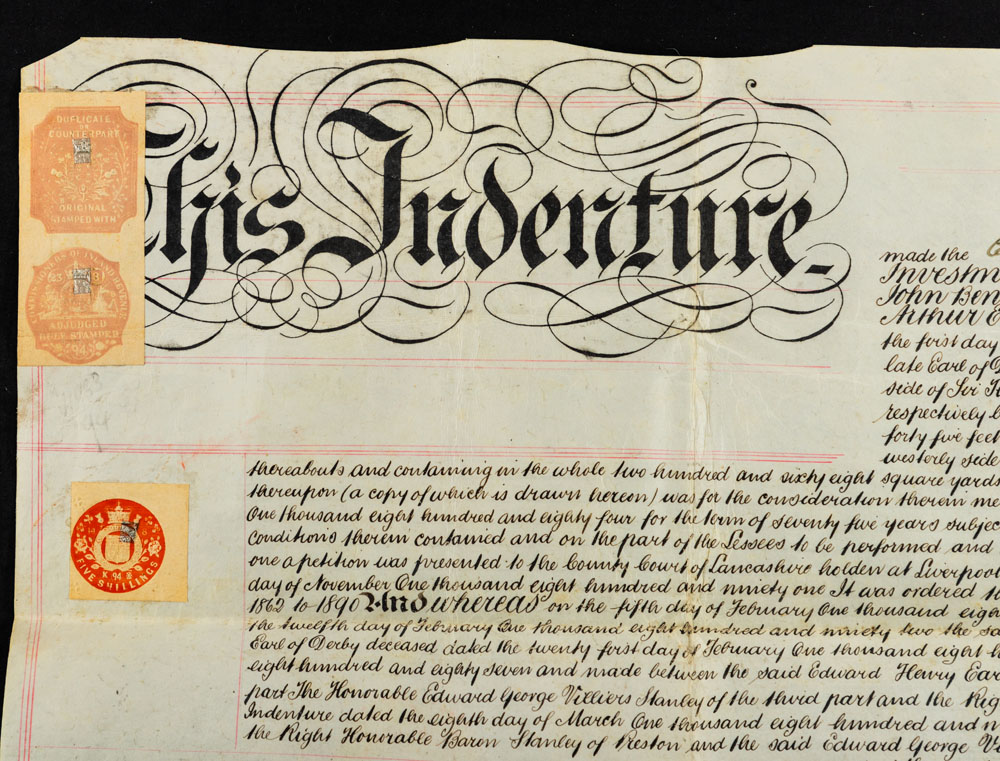 This Indenture
DUPLICATE
OR
COUNTERPART
ORIGINAL
STAMPED WITH
COMMISSIONERS OF INLAND REVENUE
ADJUDGED
DULY STAMPED
made the
Investm
John Ben
Arthur E
the first day
late Earl of D
side of Sir
respectively
forty five feet
westerly side
FIVE SHILLINGS
thereabouts and containing in the whole two hundred and sixty eight square yards
thereupon (a copy of which is drawn hereon) was for the consideration therein me
One thousand eight hundred and eighty four for the term of seventy five years subject
conditions therein contained and on the part of the Lessees to be performed and
one a petition was presented to the County Court of Lancashire holden at Liverpool
day of November One thousand eight hundred and ninety one It was ordered th
1862 to 1890 And whereas on the fifth day of February One thousand eigh
the twelfth day of February One thousand eight hundred and ninety two the sa
Earl of Derby deceased dated the twenty first day of February One thousand eight h
eight hundred and eighty seven and made between the said Edward Henry Ear
part The Honorable Edward George Villiers Stanley of the third part and the Rig
Indenture dated the eighth day of March One thousand eight hundred and n
the Right Honorable Baron Stanley of Preston and the said Edward George Vi